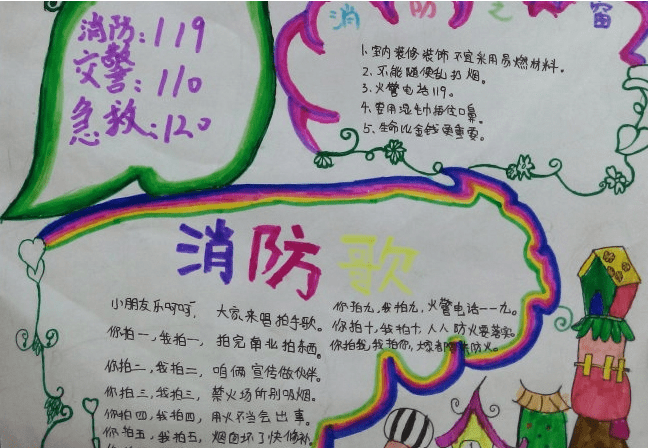 消防:119
交警:110
急救:120
消防之窗
1.室内装修装饰不宜采用易燃材料。
2.不能随便乱扔烟。
3.火警电话119。
4.要用湿毛巾捂住口鼻。
5.生命比金钱更重要。
消防歌
小朋友乐呵呵, 大家来唱拍手歌。
你拍一,我拍一,拍完单业拍东西。
你拍二,我拍二,咱俩宣传做伙伴。
你拍三,我拍三,禁火场所别吸烟。
你拍四,我拍四,用火不当会出事。
你拍五,我拍五,烟囱坏了快修补
你拍九,我拍九,火警电话一一九。
你拍十,我拍十,人人防火要落实。
你拍我,我拍你,大家都
防火。